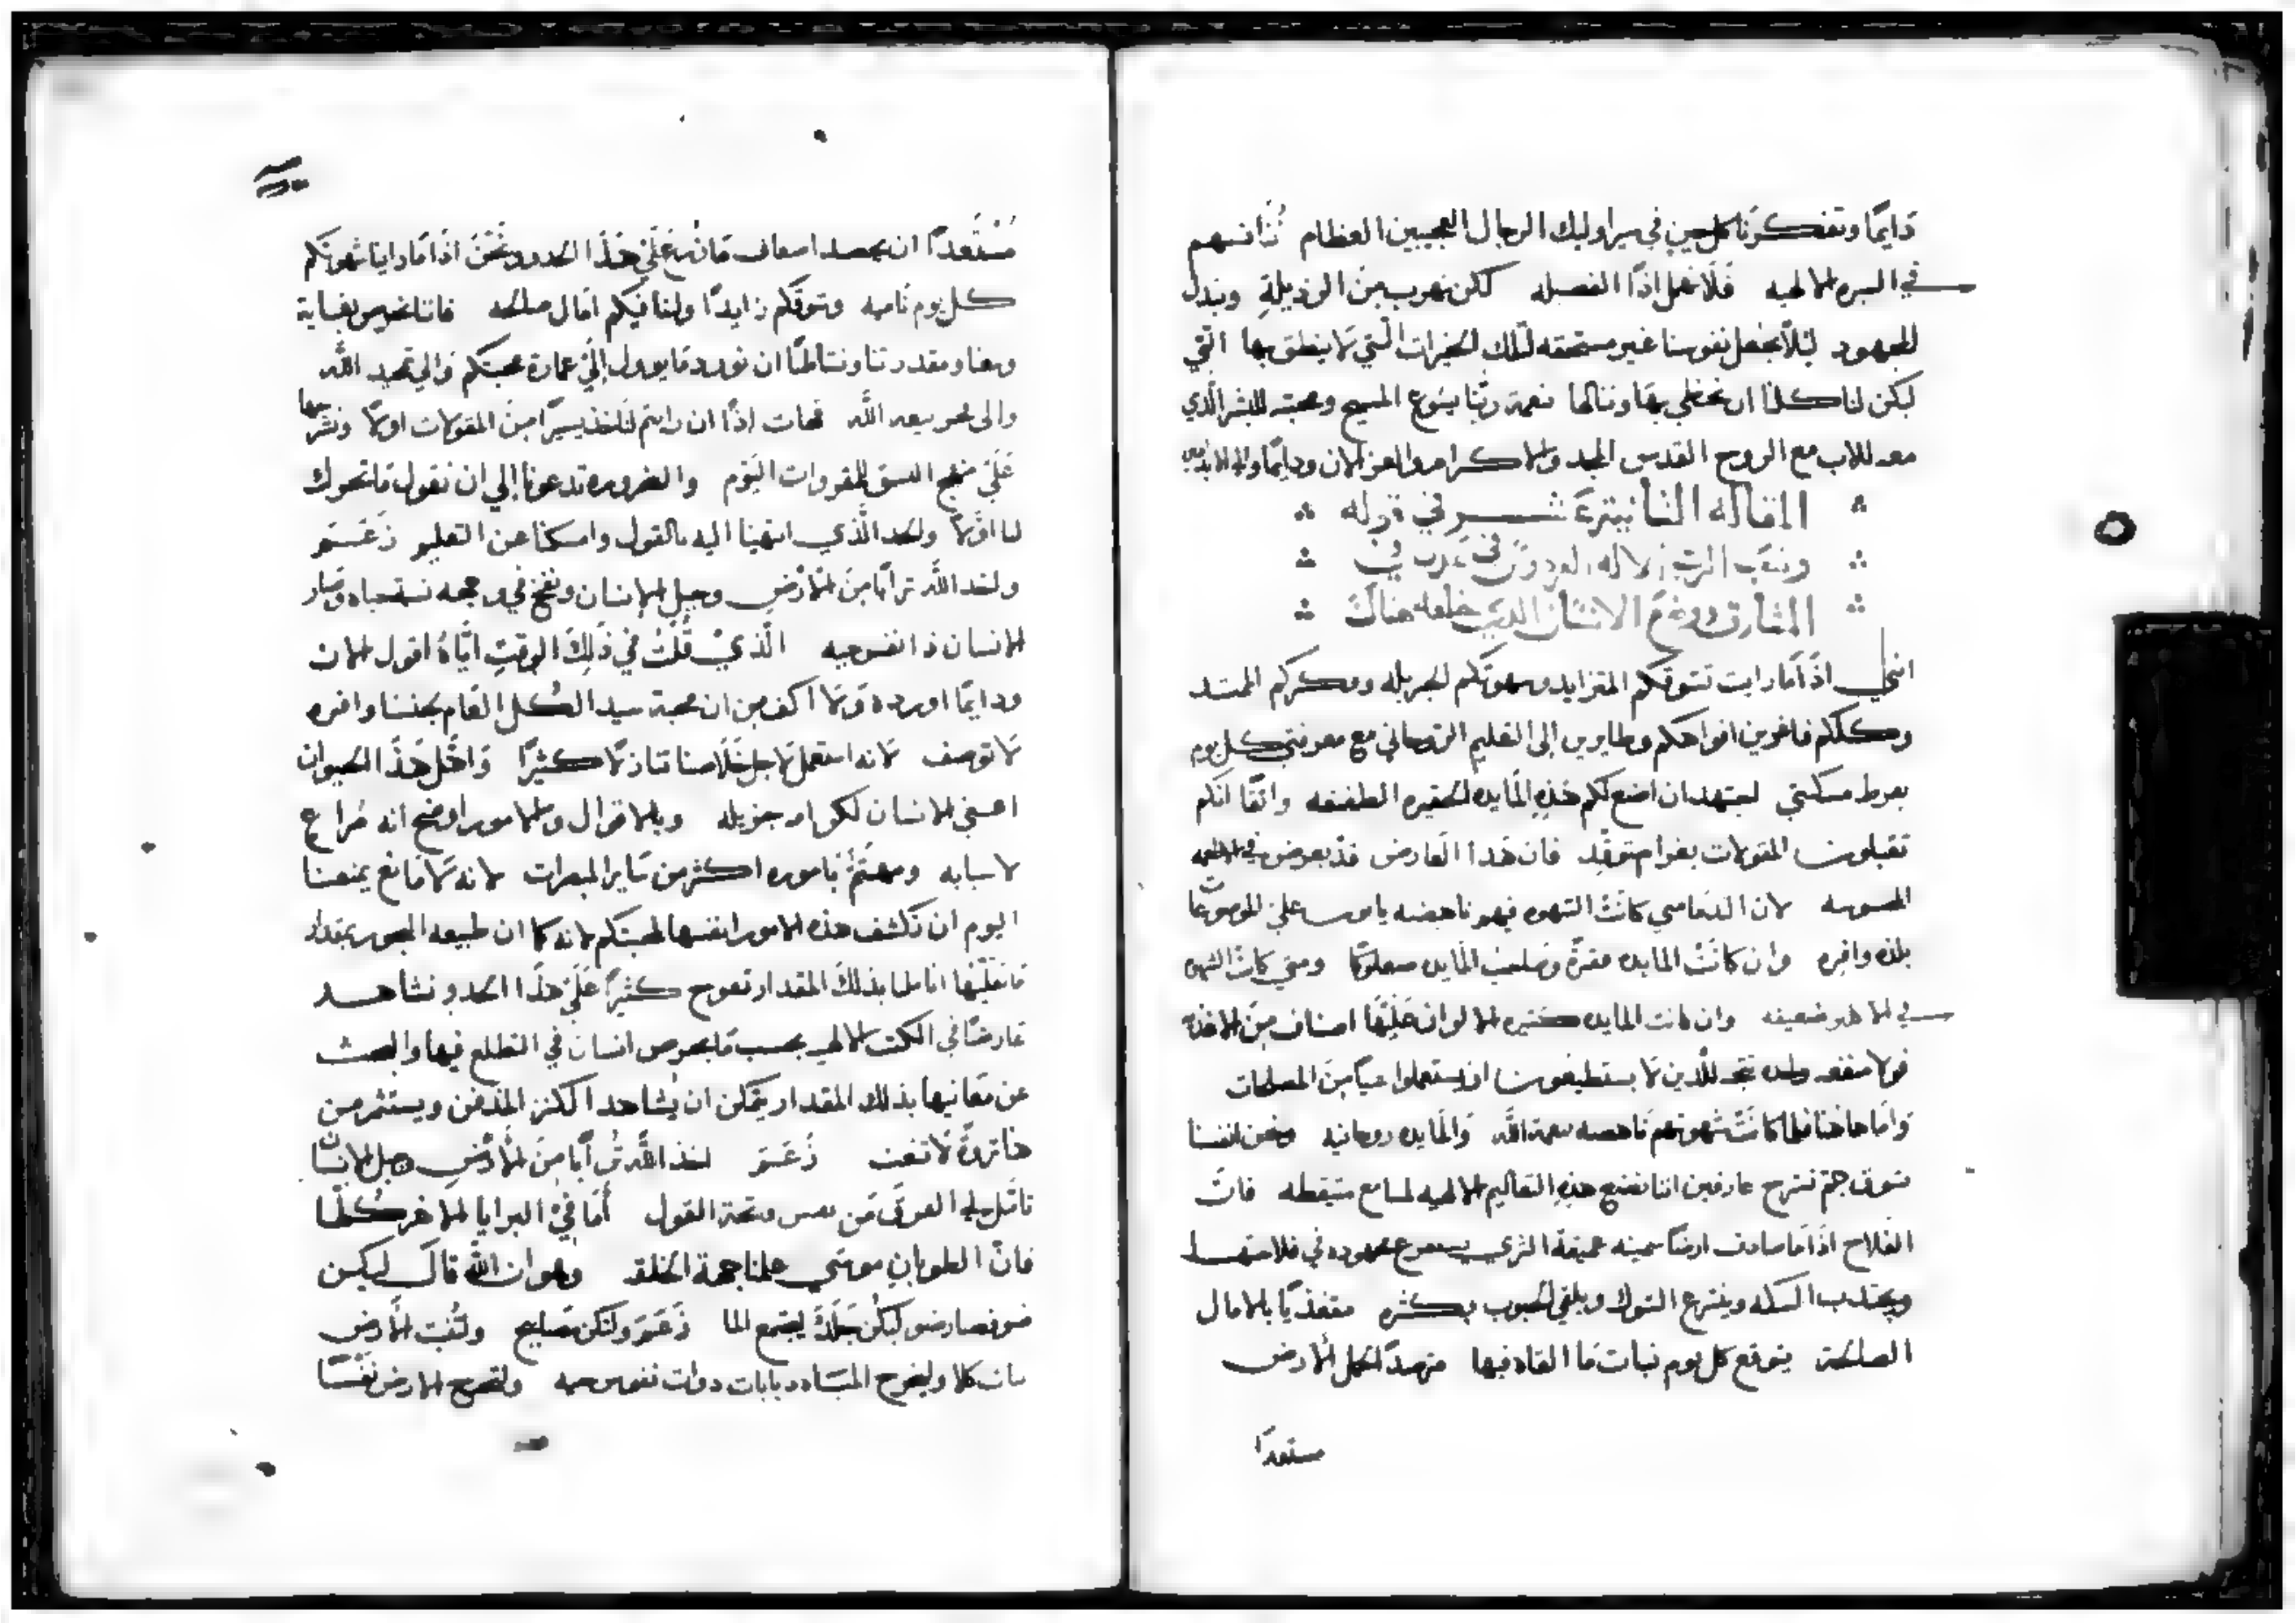 دَايمًا وتفكرنا كل حين في سير اوليك الرجال العجيبين العظام
في السيره الالهيه فَلَا نمل اذًا الفضيله لكن نهرب مِنَ الرذيلةِ ونبذل
المجهود لِيَلّا نجعل نفوسنا غير مستحقه لتلك الخيرات الّتي لَا ينطق بها الّتي
ليكن لنا كلنا ان نحظي بهَا وننالها بنعمة ربّنا يسُوع المسيح ومحبته للبشر الّذي
معه للاب مع الروح القدس المجد والاكرام والعز الان ودايمًا والى الابد
المقاله الثانية عَشر في قوله
ونصَب الرَب الاله الفردوسَ في عدن في
المشارق ووضعَ الانسَان الذي خلقه هناك
انني اذَا مَا رايت تشوقكم المتزايد وشهوتكم الجزيله وفكركم الممتد
وكلكم فاغرين افواهكم وطايرين إلى التعليم الروحاني مع معرفتي كل يوم
بفرط مسكنتي اجتهد ان اضع لكم هَذِهِ المَايده الحقيره واثقًا انكم
تقبلون المقولات بغرام متوقّدٍ فان هَذا العَارض قد يعرض في الاطعمه
المحسوسه لان متي كانَتْ الشهوه فيهم ناهضه على الموضوعات
بلذه وافره وان كانَتْ المايده حقيرةً وصَاحب المَايده صعلوكًا ومتي كانت الشهوه
في ضعيفه وان كانت المايده كثيره الالوان عَلَيْهَا اصناف مِنَ الاغذيه
فلا منفعه للّذين لَا يستطيعون ان يستعملوا شيًا مِنَ المصلحات
وَامَا هَاهنا فلما كانَتْ شهوتكم نَاهضه بنعمة اللّه وَالمَايده روحانيه ونحن انفسنا
بتوق جمّ نشرح عارفين اننا نضع هذِهِ التعَاليم الالهيه لمسامع متيقظه فانّ
الفلاح اذَا مَا صادف ارضًا سمينه عميقة الثرى يستفرغ مجهوده في فلاحتها
ويجتذب السكه وينتزع الشوك ويلقي الحبوب بكثره مغتذيًا بالامال
الصالحة يتوقع كل يوم نبات مَا القاه فيها الارض
مستعدًا
مُسْتَعدًا ان يحصد اضعاف عَلَىْ هَذَا الحد ونَحْنَ اذَا مَا راينا شهوتكم
كل يوم نَاميه وشوقكم زايدًا ولنا فيكم امَال صَالحه فاننا نحرص بغاية
وسعنا ومقدرتنا ونشاطنَا ان نورد مَا يوول إلَىْ عمارة محبتكم وَالي تمجيد اللّه
والى فخر بيعه اللّه فهات اذًا ان رايتم لنَاخذ يسيرًا مِنَ المقولات اولًا ونشرحها
عَلَىْ منهج النسق للمقروات اليَوم والضروره تدعونا إلي ان نقول مَا تحرك
لنا اوّلًا والحد الّذي انتهينا اليه بالقول وامسكنا عن التعليم زَعَمَ
واخذ اللّه ترابًا مِنَ الارْضِ وجبل الانسان ونفخ في وجهه نسمة حياه وصَار
الانسان ذا نفس حيه الّذيْ قُلْتُ في ذَلِكَ الوقتِ ايَّاهُ اقول الان
ودايمًا اورده وَلَا اكف مِن ان محبة سيد الكُل العَام بجنسنا وافره
لَا توصف لَانه استعمل لاجل خَلَاصنا تنازلًا كثيرًا وَاهّل هَذَا الحيوان
اعني الانسان لكرامه جزيله وبالاقوال وبالامور اوضح انه مُرَاعٍ
لاسبابه ومهتمٌ بَاموره اكثر من سَاير المبصرات لانه لَا مَانع يمنعنا
اليوم ان نكشف هذه الامور انفسها لمحبتكم لانه كما ان طبيعه البخور بمقدار
مَا تقلّبها اناملنا بذلكَ المقدار تفوح كثيرًا عَلَىْ هذَا الحد ونشاهد
عَارضًا في الكتب الالهيه بحسب مَا يحرص انسان في التطلع فيها والبحث
عن معَانيها بذلك المقدار يمكن ان يُشاهد الكنز المدفن ويستثمر من
هنا ثروةً لَا تنعت زَعَمَ اخذ اللّه تُرابًا مِنَ الاَرْضِ وجبل الانسَان
تامَّل لي الفرق مَن نفس فتحة القول أَمَا فيْ البرايا الاخر كُلها
فانّ الطوباني موسَي علمنا جهة الخلقه وهو ان اللّه قالَ ليكن
ضو فصار ضو ليكُن جَلَدٌ ليجتمع الما زَعَمَ ولتكن مصَابيح ولتُنبت الاَرض
نبات كلا وليخرج الميَاه دبابات دوات نفوس حيه ولتخرج الارض نفسًا